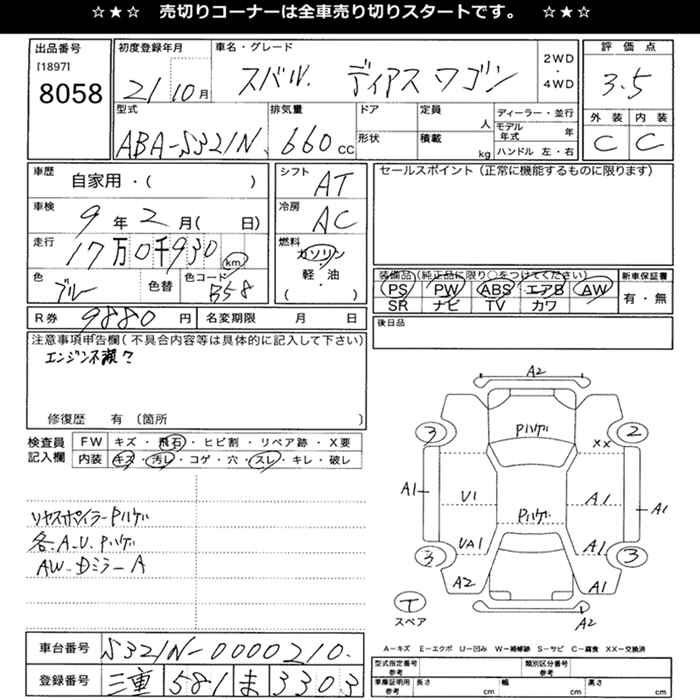 ☆★☆ 売切りコーナーは全車売り切りスタートです。 ☆★☆
出品番号 初度登録年月 車名・グレード 評価点
[1897]
8058 21 10月 スバル. ディアスワゴン 2WD・4WD 3.5
型式 排気量 ドア 定員 人 ディーラー・並行 外装 内装
ABA-S321N 660cc 形状 積載 kg モデル年式 年 C C
ハンドル 左・右
車歴 自家用・( ) シフト AT セールスポイント(正常に機能するものに限ります)
車検 9年2月( 日) 冷房 AC
走行 17万0千930km 燃料 ガソリン
軽・油
( )
色 ブルー 色替 色コード B58 装備品(純正品に限り○をつけてください) 新車保証書
PS PW ABS エアB AW 有・無
SR ナビ TV カワ
R券 9880円 名変期限 月 日 後日品
注意事項申告欄(不具合内容等は具体的に記入して下さい)
エンジン不調?
修復歴 有 〔箇所 〕
検査員記入欄 FW キズ・飛石・ヒビ割・リペア跡・X要
内装 キズ・汚レ・コゲ・穴・スレ・キレ・破レ
リヤスポイラーPハゲ
各.A.U.Pハゲ
AW-Dミラ-A
A2
3 Pハゲ 2
XX
A1 U1 A1 A1
Pハゲ
UA1 A1
3 3
A2 A1
T A2
スペア
A-キズ E-エクボ U-凹み W-補修跡 S-サビ C-腐食 XX-交換済
車台番号 S321N-0000210.
登録番号 三重 581 ま 3303
型式指定番号 参考 類別区分番号 参考
車庫証明用 参考 長さ cm 幅 cm 高さ cm